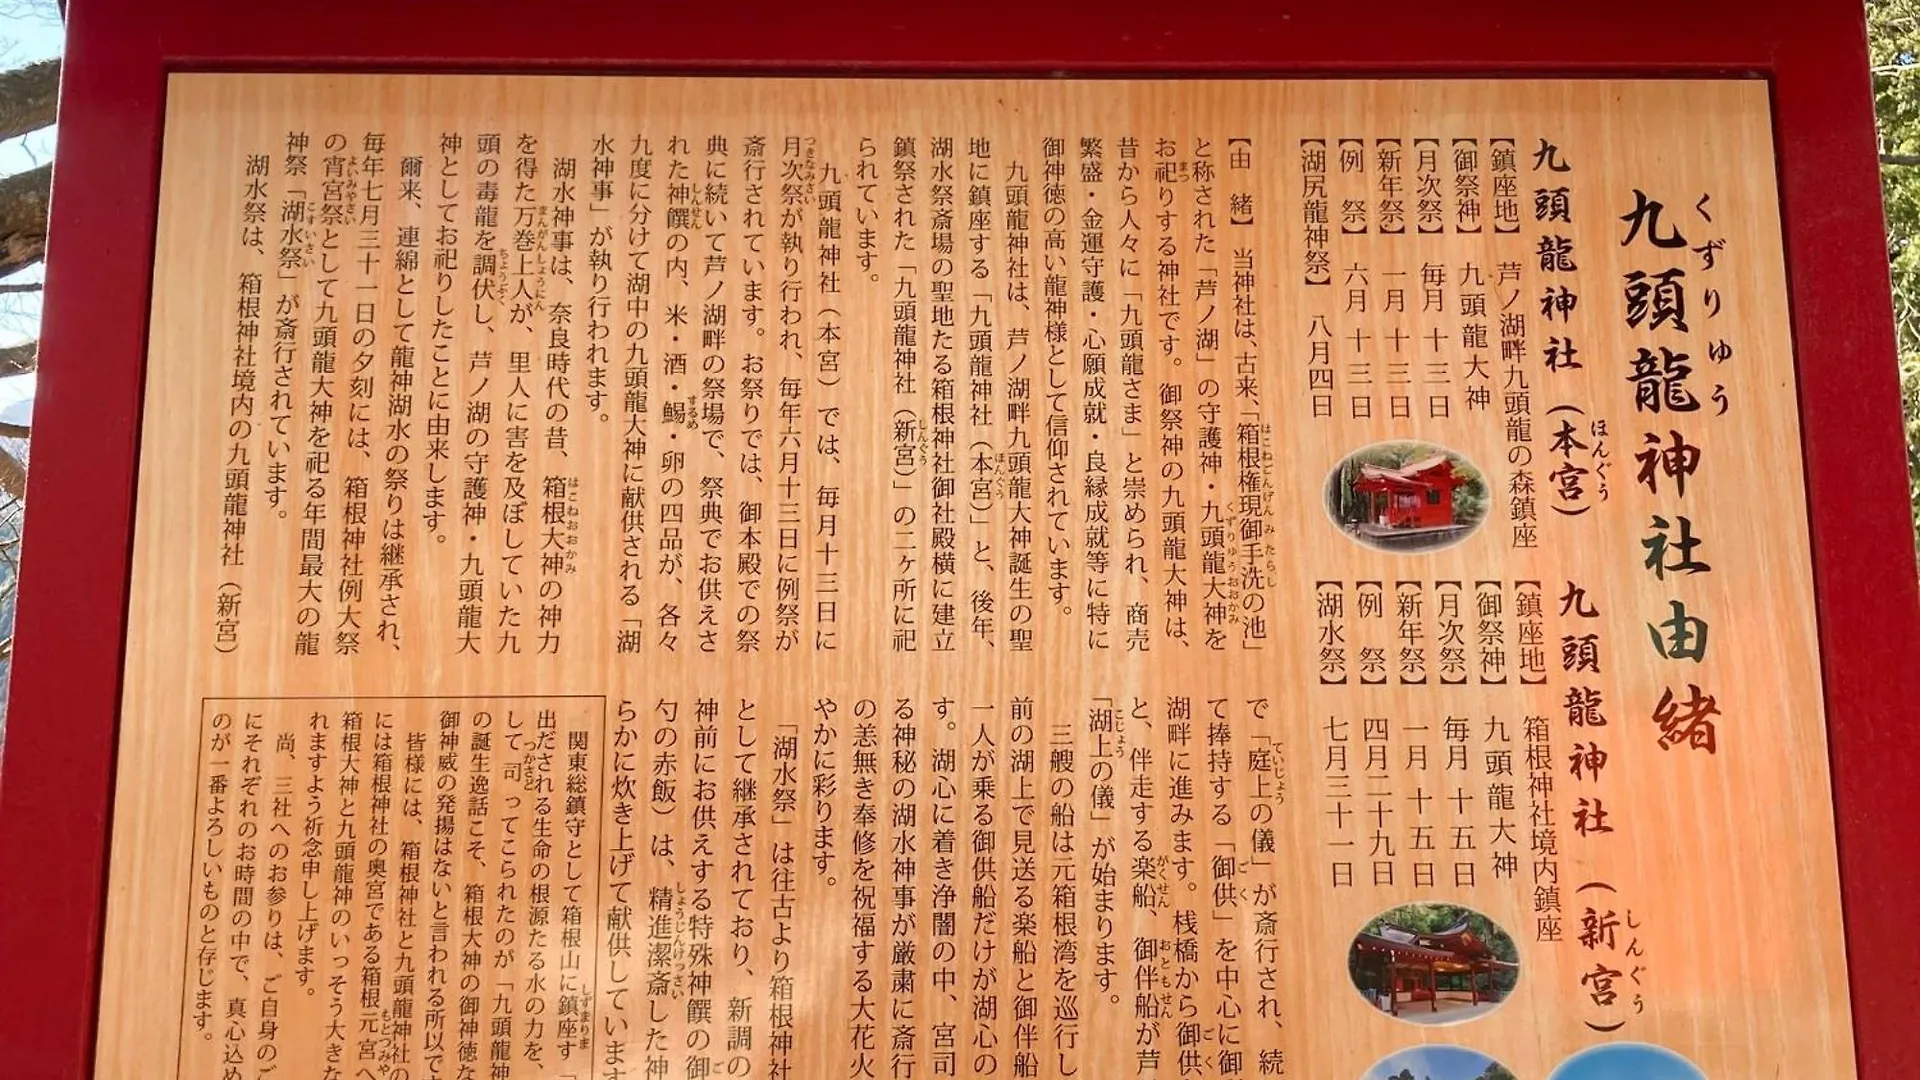 九頭龍神社由緒
くずりゅう
九頭龍神社（本宮）
ほんぐう
【鎮座地】 芦ノ湖畔九頭龍の森鎮座
【御祭神】 九頭龍大神
【月次祭】 毎月 十三日
【新年祭】 一月 十三日
【例 祭】 六月 十三日
【湖尻龍神祭】 八月四日
九頭龍神社（新宮）
しんぐう
【鎮座地】 箱根神社境内鎮座
【御祭神】 九頭龍大神
【月次祭】 毎月 十五日
【新年祭】 一月 十五日
【例 祭】 四月二十九日
【湖水祭】 七月三十一日
【由 緒】 当神社は、古来、「箱根権現御手洗の池」
はこねごんげんみたらし
と称された「芦ノ湖」の守護神・九頭龍大神を
くずりゅうおおかみ
お祀りする神社です。御祭神の九頭龍大神は、
まつ
昔から人々に「九頭龍さま」と崇められ、商売
繁盛・金運守護・心願成就・良縁成就等に特に
御神徳の高い龍神様として信仰されています。
九頭龍神社は、芦ノ湖畔九頭龍大神誕生の聖
地に鎮座する「九頭龍神社（本宮）」と、後年、
ほんぐう
湖水祭斎場の聖地たる箱根神社御社殿横に建立
鎮祭された「九頭龍神社（新宮）」の二ヶ所に祀
しんぐう
られています。
九頭龍神社（本宮）では、毎月十三日に
月次祭が執り行われ、毎年六月十三日に例祭が
つきなみさい
斎行されています。お祭りでは、御本殿での祭
典に続いて芦ノ湖畔の祭場で、祭典でお供えさ
れた神饌の内、米・酒・鯣・卵の四品が、各々
しんせん するめ
九度に分けて湖中の九頭龍大神に献供される「湖
水神事」が執り行われます。
湖水神事は、奈良時代の昔、箱根大神の神力
はこねおおかみ
を得た万巻上人が、里人に害を及ぼしていた九
まんがんしょうにん
頭の毒龍を調伏し、芦ノ湖の守護神・九頭龍大
ちょうぶく
神としてお祀りしたことに由来します。
爾来、連綿として龍神湖水の祭りは継承され、
毎年七月三十一日の夕刻には、箱根神社例大祭
の宵宮祭として九頭龍大神を祀る年間最大の龍
よいみやさい
神祭「湖水祭」が斎行されています。
こすいさい
湖水祭は、箱根神社境内の九頭龍神社（新宮）
で「庭上の儀」が斎行され、続
ていじょう
て捧持する「御供」を中心に御
ごく
湖畔に進みます。桟橋から御供
ごく
と、伴走する楽船、御伴船が芦
がくせん おともせん
「湖上の儀」が始まります。
こじょう
三艘の船は元箱根湾を巡行し
前の湖上で見送る楽船と御伴船
一人が乗る御供船だけが湖心の
す。湖心に着き浄闇の中、宮司
る神秘の湖水神事が厳粛に斎行
の恙無き奉修を祝福する大花火
やかに彩ります。
「湖水祭」は往古より箱根神社
として継承されており、新調の
神前にお供えする特殊神饌の御
ご
勺の赤飯）は、精進潔斎した神
しょうじんけっさい
らかに炊き上げて献供しています
関東総鎮守として箱根山に鎮座す
しずまりま
出だされる生命の根源たる水の力を、
して司ってこられたのが「九頭龍神
つかさど
の誕生逸話こそ、箱根大神の御神徳な
御神威の発揚はないと言われる所以で
皆様には、箱根神社と九頭龍神社の
には箱根神社の奥宮である箱根元宮へ
もとつみや
箱根大神と九頭龍神のいっそう大きな
れますよう祈念申し上げます。
尚、三社へのお参りは、ご自身のご
にそれぞれのお時間の中で、真心込め
のが一番よろしいものと存じます。